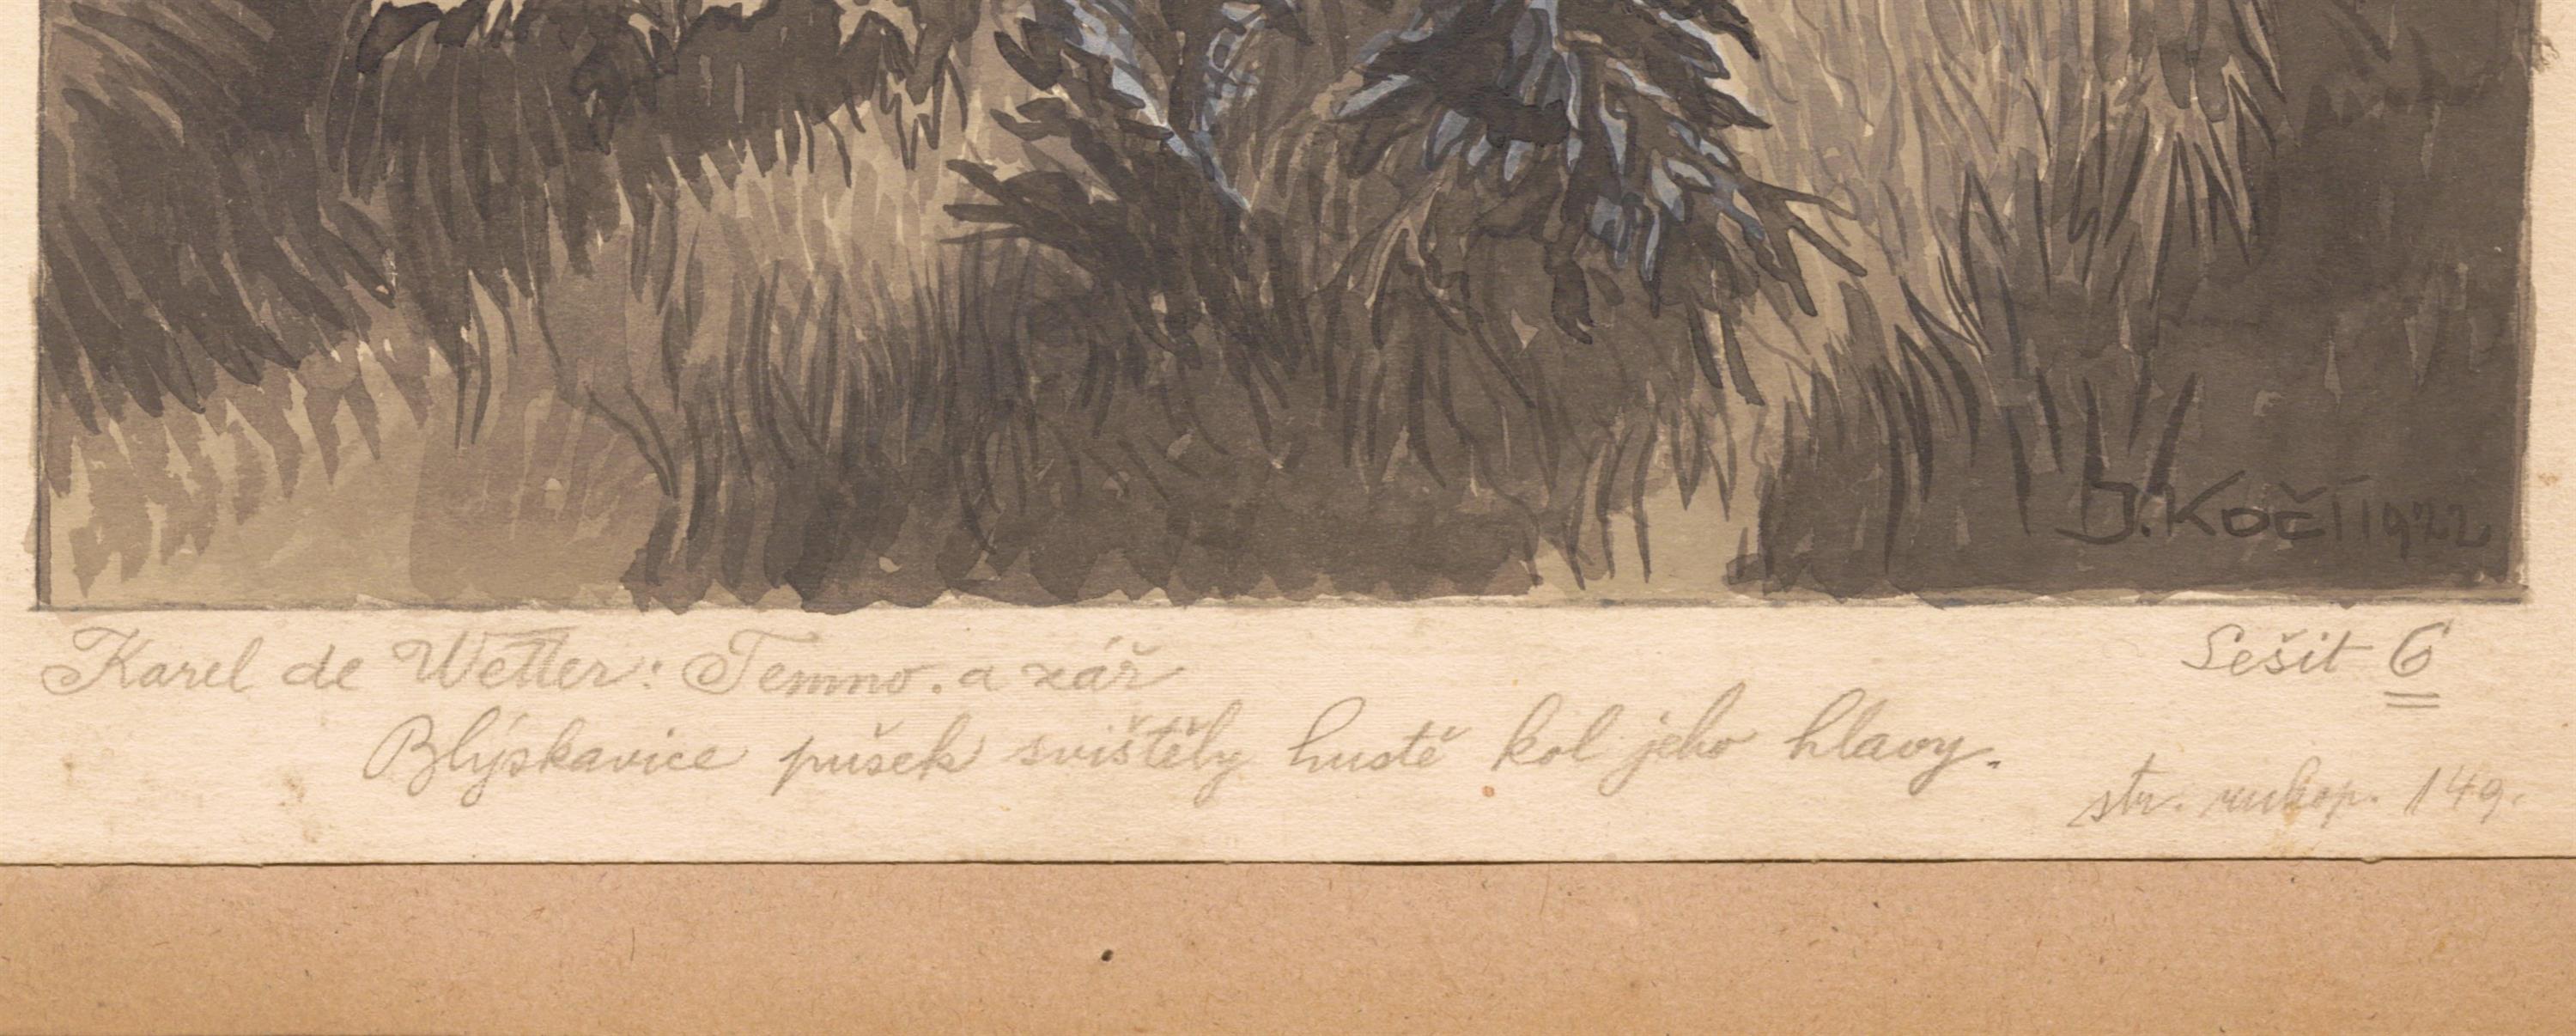 J. Kočí 1922
Karel de Wetter: Temno a zář
Sešit 6
Blýskavice pušek svištěly hustě kol jeho hlavy.
str. rukop. 149.